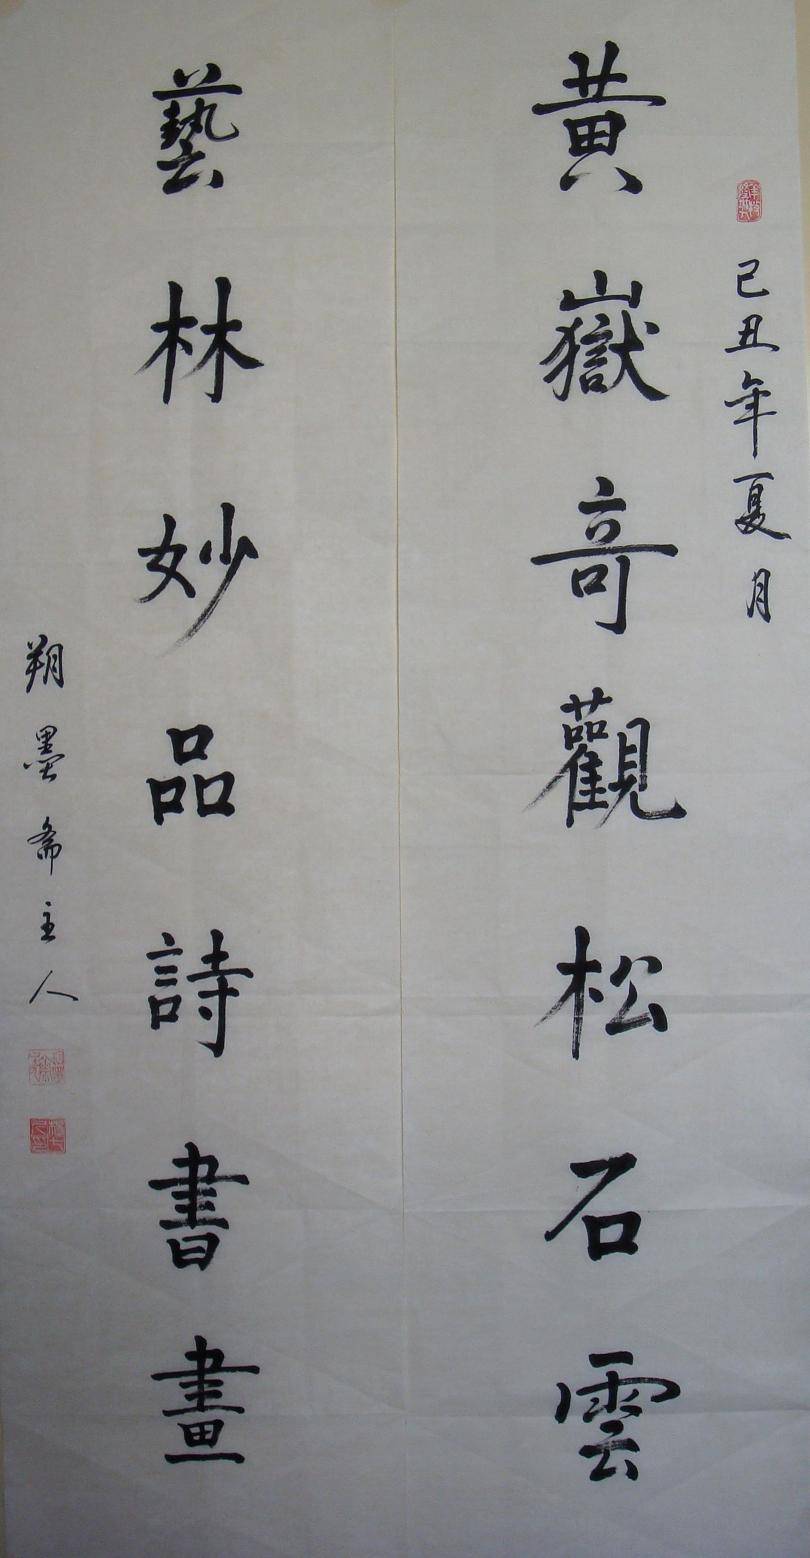 己丑年夏月
黄嶽奇觀松石雲
藝林妙品詩書畫
朔墨斋主人